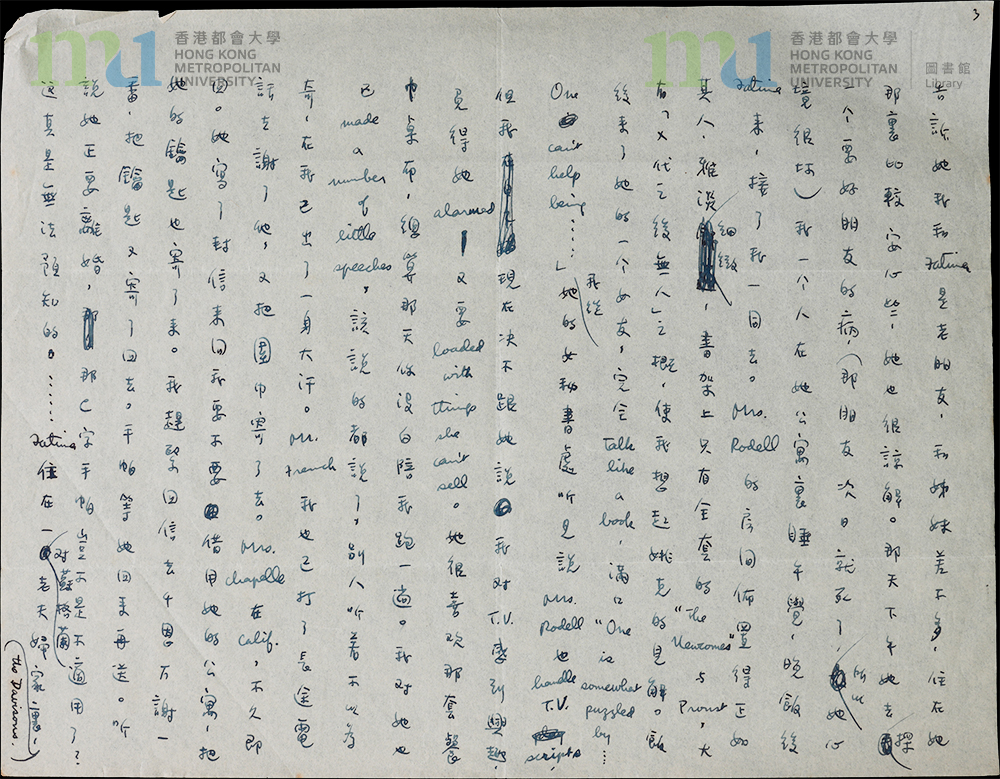 3
香港都會大學
HONG KONG
METROPOLITAN
UNIVERSITY
香港都會大學
HONG KONG
METROPOLITAN
UNIVERSITY
圖書館
Library
告訴她我和 Fatima 是老朋友,和姊妹差不多,住在她
那裏比較安心些,她也很諒解。那天下午她去探
一个要好朋友的病,(那朋友次日就死了,所以她心
境很坏)我一个人在她公寓裏睡午覺,晚飯後
Fatima 來,接了我一同去。Mrs. Rodell 的房间佈置得正如
其人,雅淡細緻,書架上只有全套的 "The Newcomes" 与 Proust,大
有「×代之後無人」之概,使我想起姚克的見解。飯
後來了她的一个女友,完全 talk like a book,滿口 "One is somewhat puzzled by…
One can't help being……」我從她的女秘書處听見說 Mrs. Rodell 也 handle T.V. scripts,
但我現在决不跟她說我对 T.V. 感到興趣,
免得她 alarmed 又要 loaded with things she can't sell。她很喜欢那套餐
巾桌布,總算那天你沒白陪我跑一趟。我对她也
已 made a number of little speeches,該說的都說了,別人听着不以為
奇,在我已出了一身大汗。Mr. French 我也已打了長途電
話去謝了他,又把圍巾寄了去。Mrs. Chapelle 在 Calif.,不久即
回。她寫了封信來回我要不要借用她的公寓,把
她的鑰匙也寄了來。我趕緊回信去千恩万謝一
番,把鑰匙又寄了回去。手帕等她回來再送。听
說她正要離婚,那C字手帕豈不是不適用了?
這真是無法預知的。……Fatima 住在一对蘇格蘭老夫婦家裏,(the Davisons.)